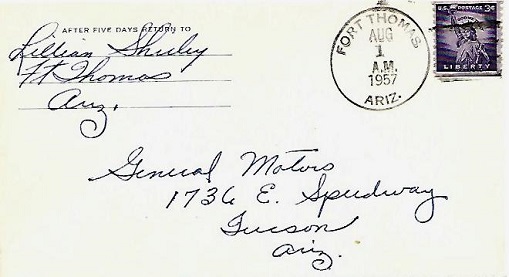 AFTER FIVE DAYS RETURN TO
Lillian Shirley
Ft Thomas
Ariz.
FORT THOMAS
AUG
1
A.M.
1957
ARIZ.
U.S. POSTAGE 3¢
LIBERTY
General Motors
1736 E. Speedway
Tucson
Ariz.